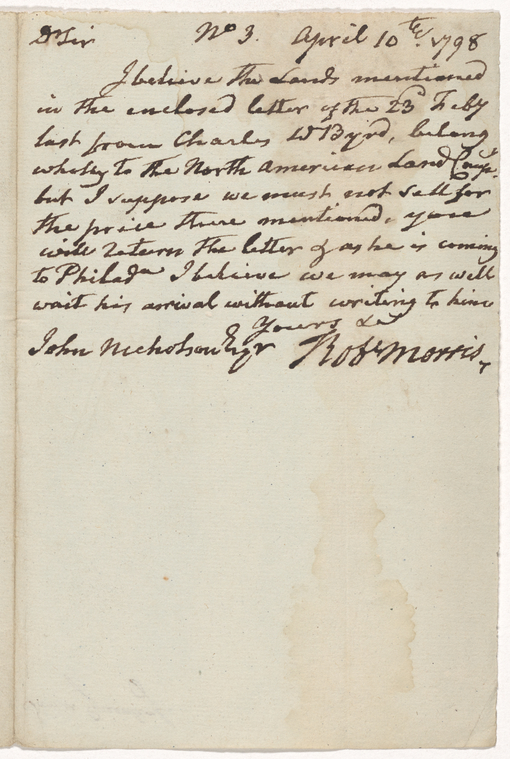 Dr Sir No 3. April 10th. 1798
I believe the Lands mentioned
in the enclosed letter of the 23d Feby
last from Charles Wm Byrd, belong
wholey to the North American Land Compy.
but I suppose we must not sell for
the price there mentioned, youe
will return the letter & as he is coming
to Philada I believe we may as well
wait his arrival without writing to him
Yours &c
John Nicholson Esqr Robt Morris